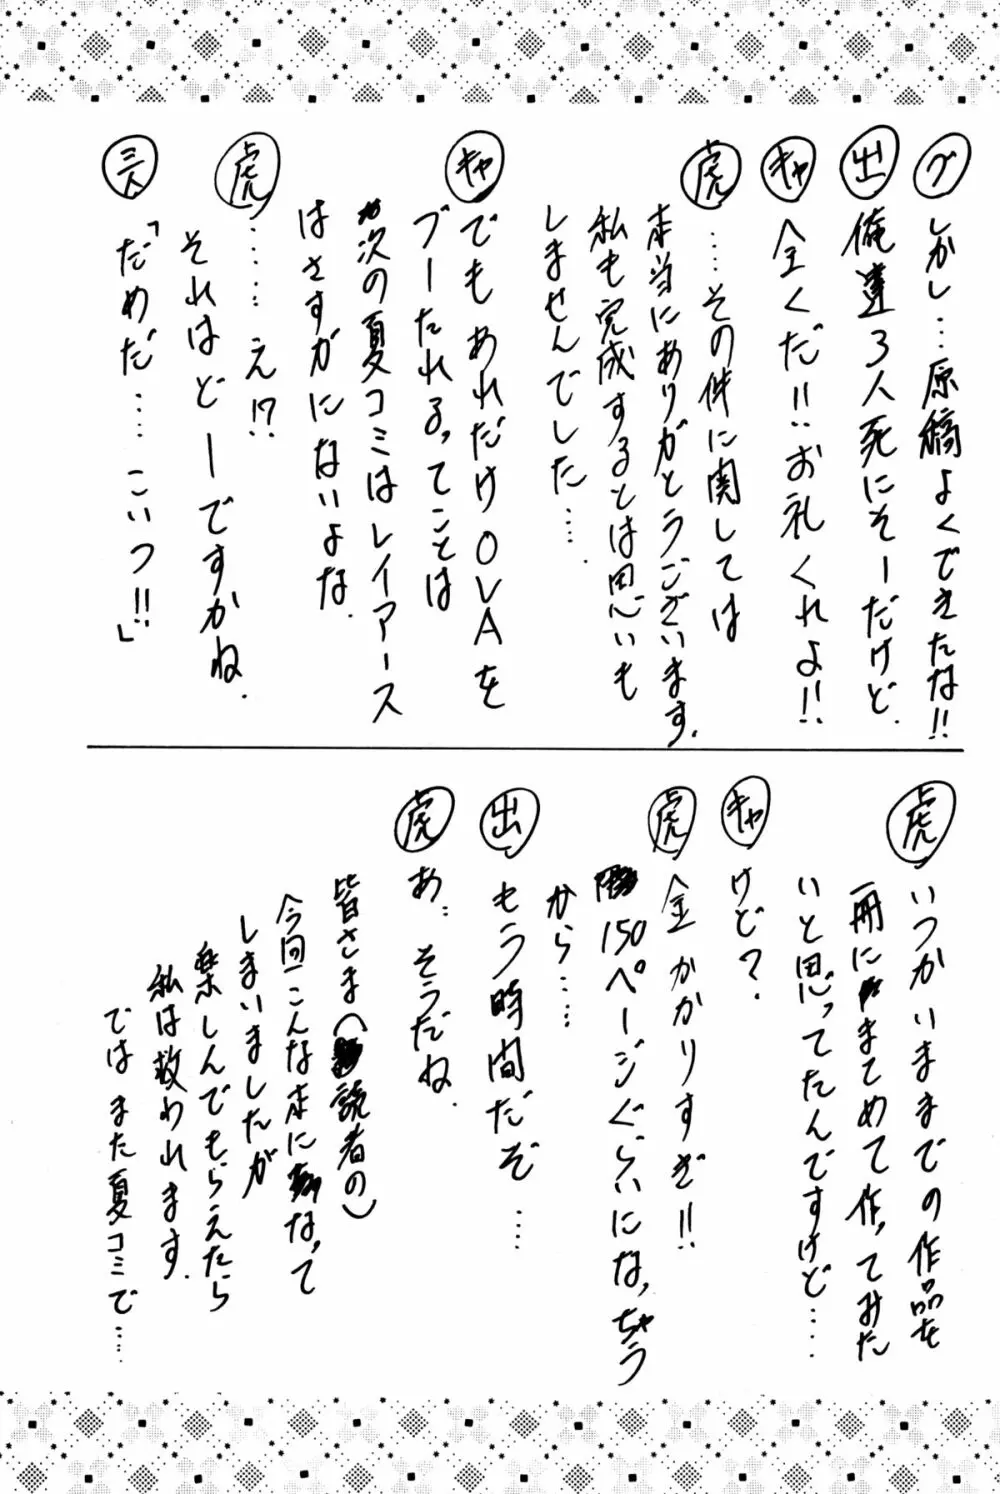 グ しかし…原稿よくできたな!!
出 俺達3人死にそーだけど.
キャ 全くだ!!お礼くれよ!!
虎 ……その件に関しては
本当にありがとうございます.
私も完成するとは思いも
しませんでした……
キャ でもあれだけOVAを
ブーたれるってことは
次の夏コミはレイアース
はさすがにないよな.
虎 ……え!?
それはどーですかね.
三人 「だめだ……こいつ!!」
虎 いつかいままでの作品を
一冊にまとめて作ってみた
いと思ってたんですけど……
キャ けど?
虎 金かかりすぎ!!
150ページぐらいになっちゃう
から……
出 もう時間だぞ……
虎 あ…そうだね.
皆さま(読者の)
今回こんな本になって
しまいましたが
楽しんでもらえたら
私は救われます.
ではまた夏コミで……